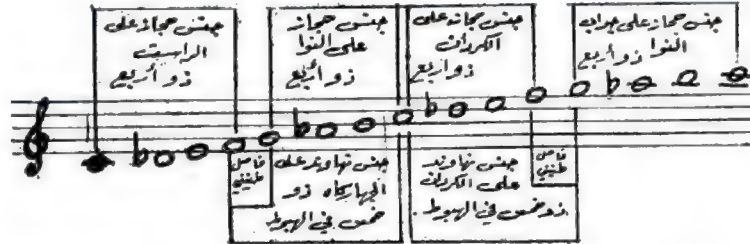 جنس حجاز على
الراست
ذو أربع
جنس حجاز
على النوا
ذو أربع
جنس حجاز على
الكردان
ذو اربع
جنس حجاز على جواب
النوا
ذو أربع
فاصل
طنيني
جنس نهاوند على
الجهاركاه ذو
خمس في الهبوط
جنس نهاوند
على الكردان
ذو خمس في الهبوط .
فاصل
طنيني